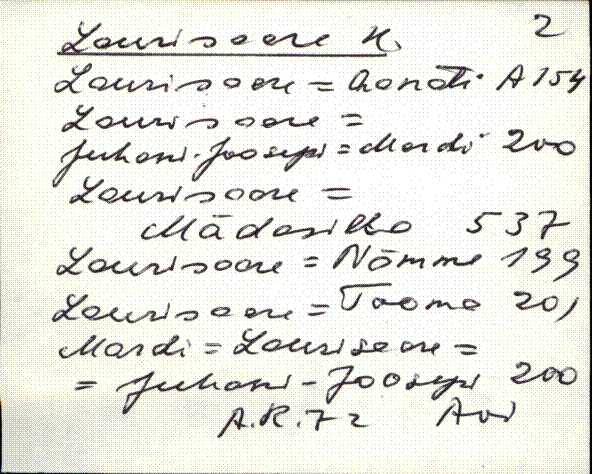 Laurisaare k. 2
Laurisaare = Aanati A 154
Laurisaare =
Juhani-Joosepi = Mardi 200
Laurisaare =
Mädasilla 537
Laurisaare = Nõmme 199
Laurisaare = Tooma 201
Mardi = Laurisaare =
= Juhani-Joosepi 200
A.R. 72 Avi